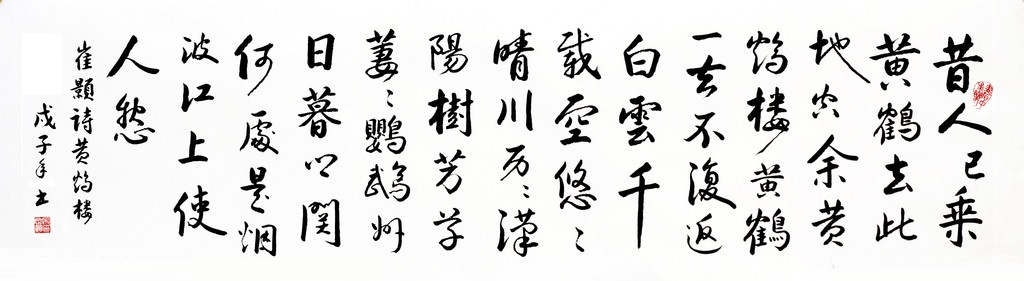 昔人已乘
黄鶴去此
地空余黄
鹤楼黄鶴
一去不復返
白雲千
載空悠々
晴川历々漢
陽樹芳草
萋々鸚鵡洲
日暮乡関
何處是烟
波江上使
人愁
崔顥詩黄鹤楼
戊子年书